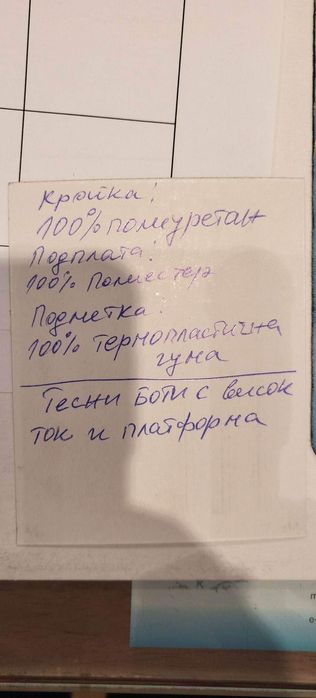 Кройка:
100% полиуретан
Подплата:
100% Полиестер
Подметка:
100% Термопластична
гума
Тесни Боти с висок
ток и платформа